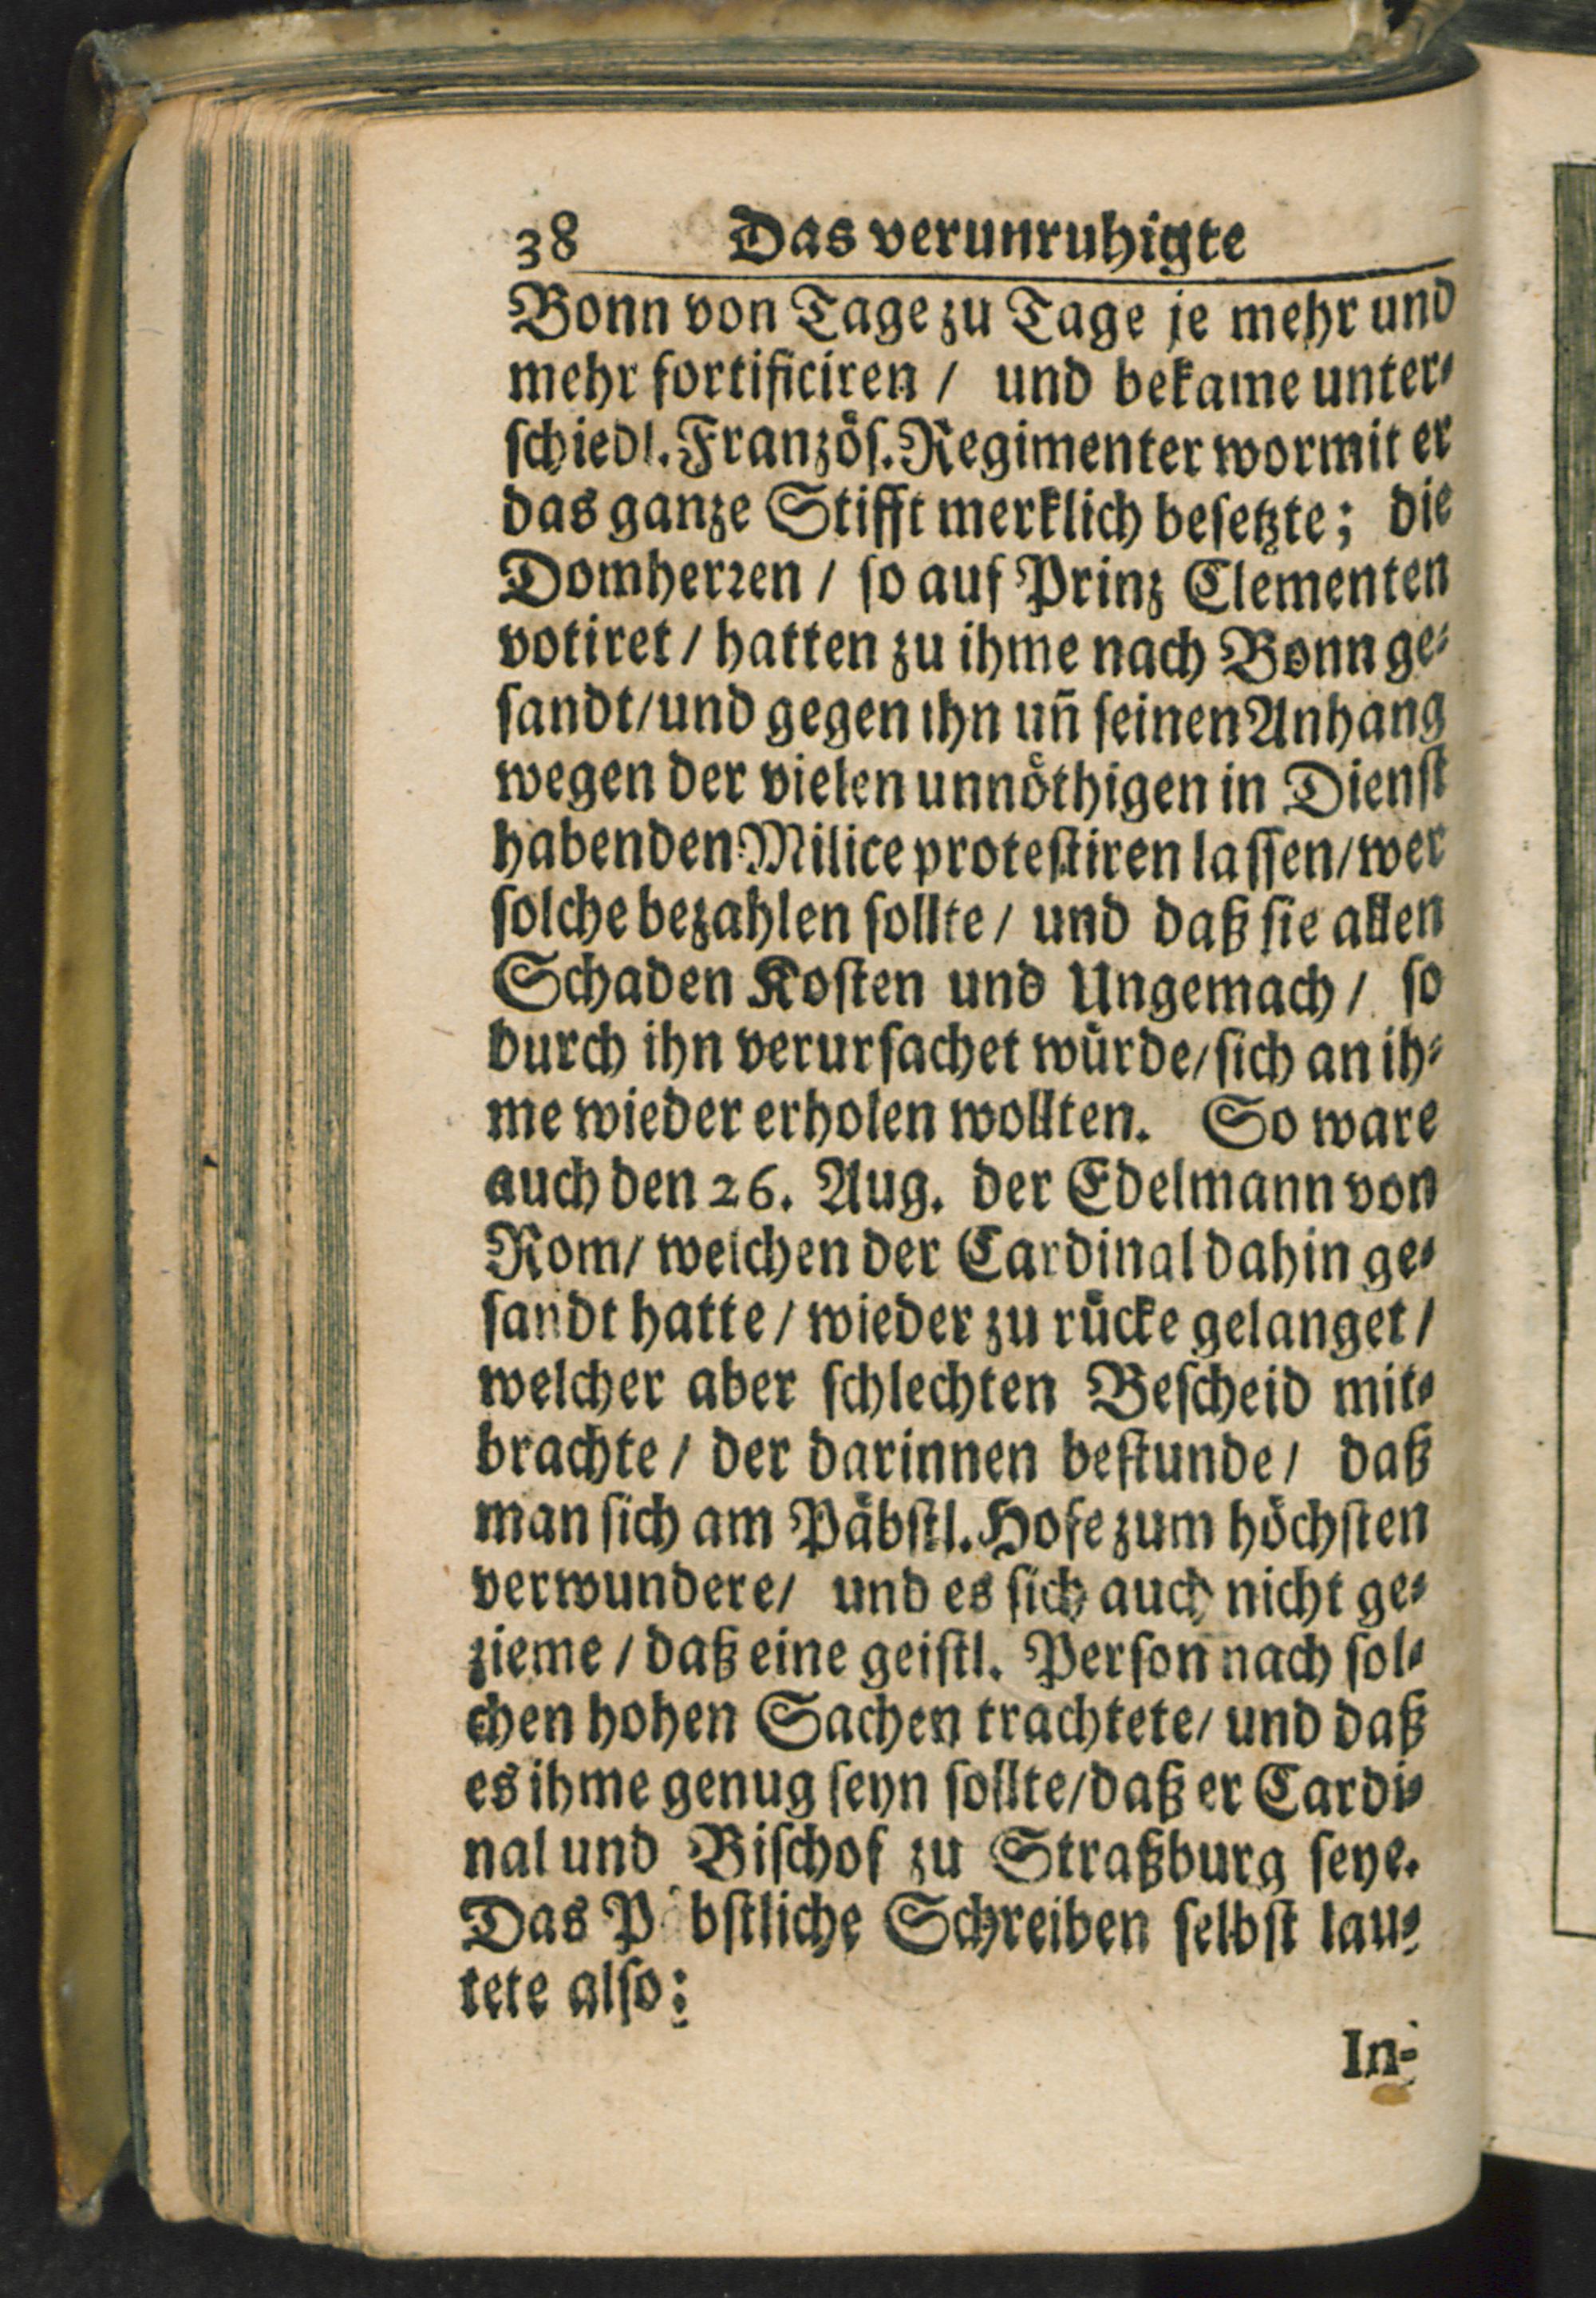 38 Das verunruhigte
Bonn von Tage zu Tage je mehr und
mehr fortificiren / und bekame unter⸗
ſchiedl. Franzöſ. Regimenter wormit er
das ganze Stifft merklich beſetzte; die
Domherꝛen / ſo auf Prinz Clementen
votiret / hatten zu ihme nach Bonn ge⸗
ſandt / und gegen ihn uñ ſeinen Anhang
wegen der vielen unnöthigen in Dienſt
habenden Milice proteſtiren laſſen / wer
ſolche bezahlen ſollte / und daß ſie allen
Schaden Koſten und Ungemach / ſo
durch ihn verurſachet würde / ſich an ih⸗
me wieder erholen wollten. So ware
auch den 26. Aug. der Edelmann von
Rom / welchen der Cardinal dahin ge⸗
ſandt hatte / wieder zu rücke gelanget /
welcher aber ſchlechten Beſcheid mit⸗
brachte / der darinnen beſtunde / daß
man ſich am Päbſtl. Hofe zum höchſten
verwundere / und es ſich auch nicht ge⸗
zieme / daß eine geiſtl. Perſon nach ſol⸗
chen hohen Sachen trachtete / und daß
es ihme genug ſeyn ſollte / daß er Cardi⸗
nal und Biſchof zu Straßburg ſeye.
Das Päbſtliche Schreiben ſelbſt lau⸗
tete alſo:
In-